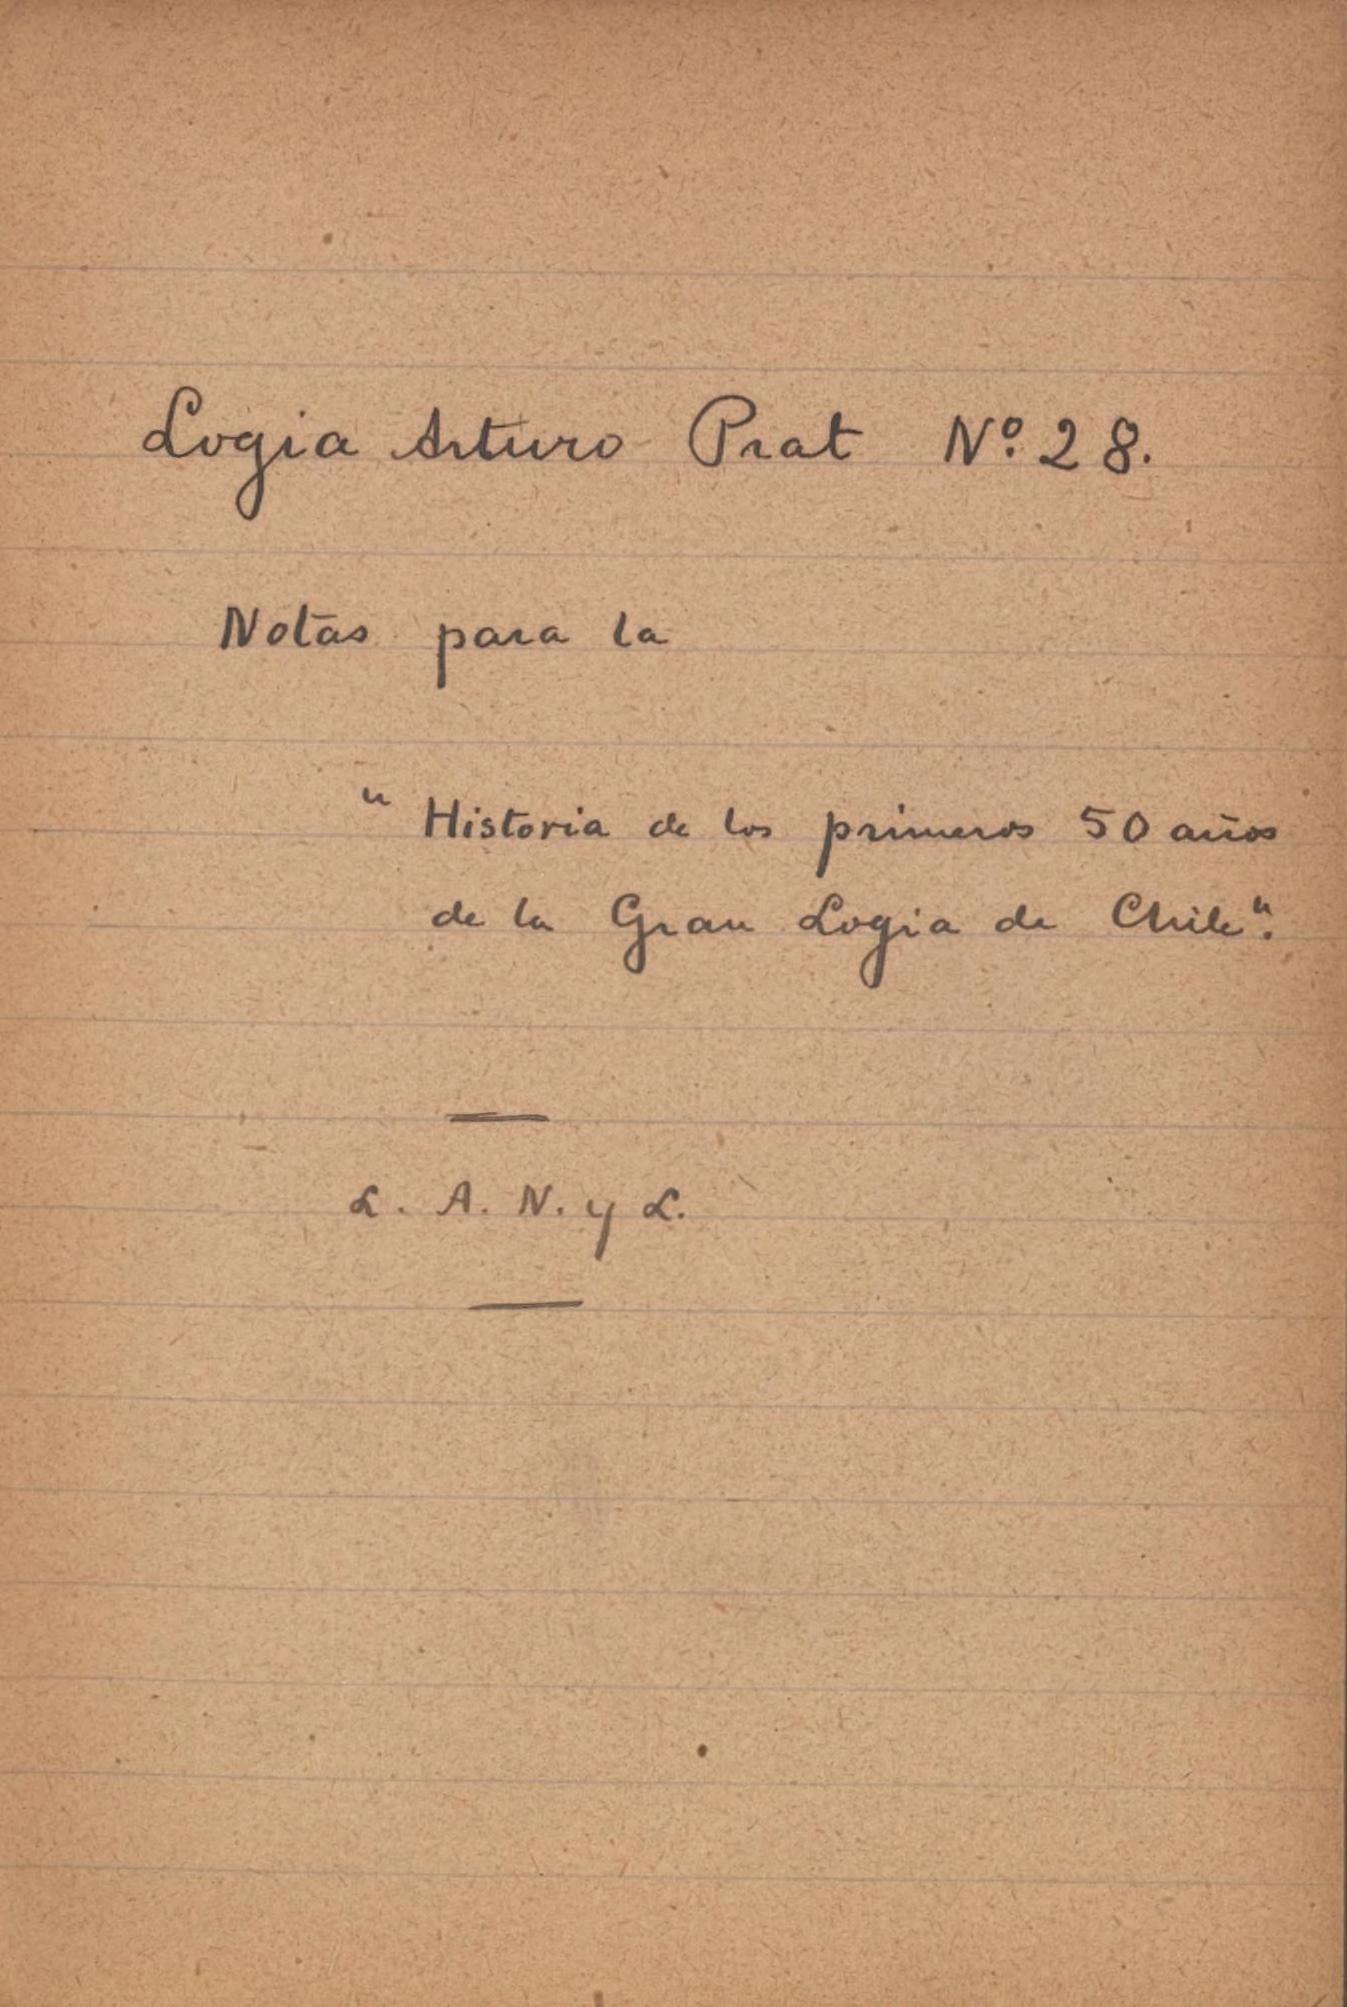 Logia Arturo Prat Nº. 28.
Notas para la
"Historia de los primeros 50 años
de la Gran Logia de Chile".
L. A. N. y L.